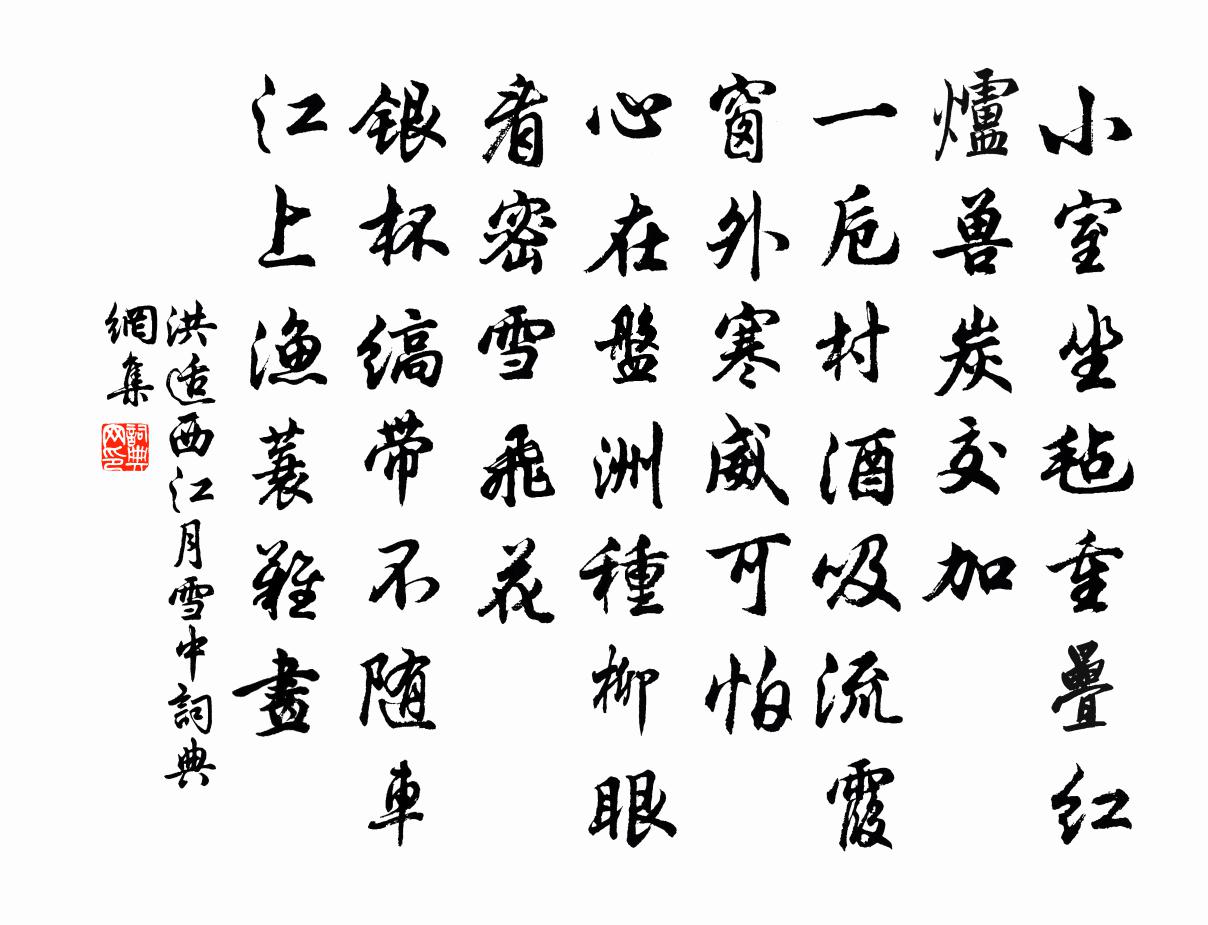 小室坐毡重疊红
爐兽炭交加
一卮村酒吸流霞
窗外寒威可怕
心在盤洲種柳眼
看密雪飛花
银杯缟带不随車
江上漁蓑難畫
洪适西江月雪中詞典
網集
詞典
网印